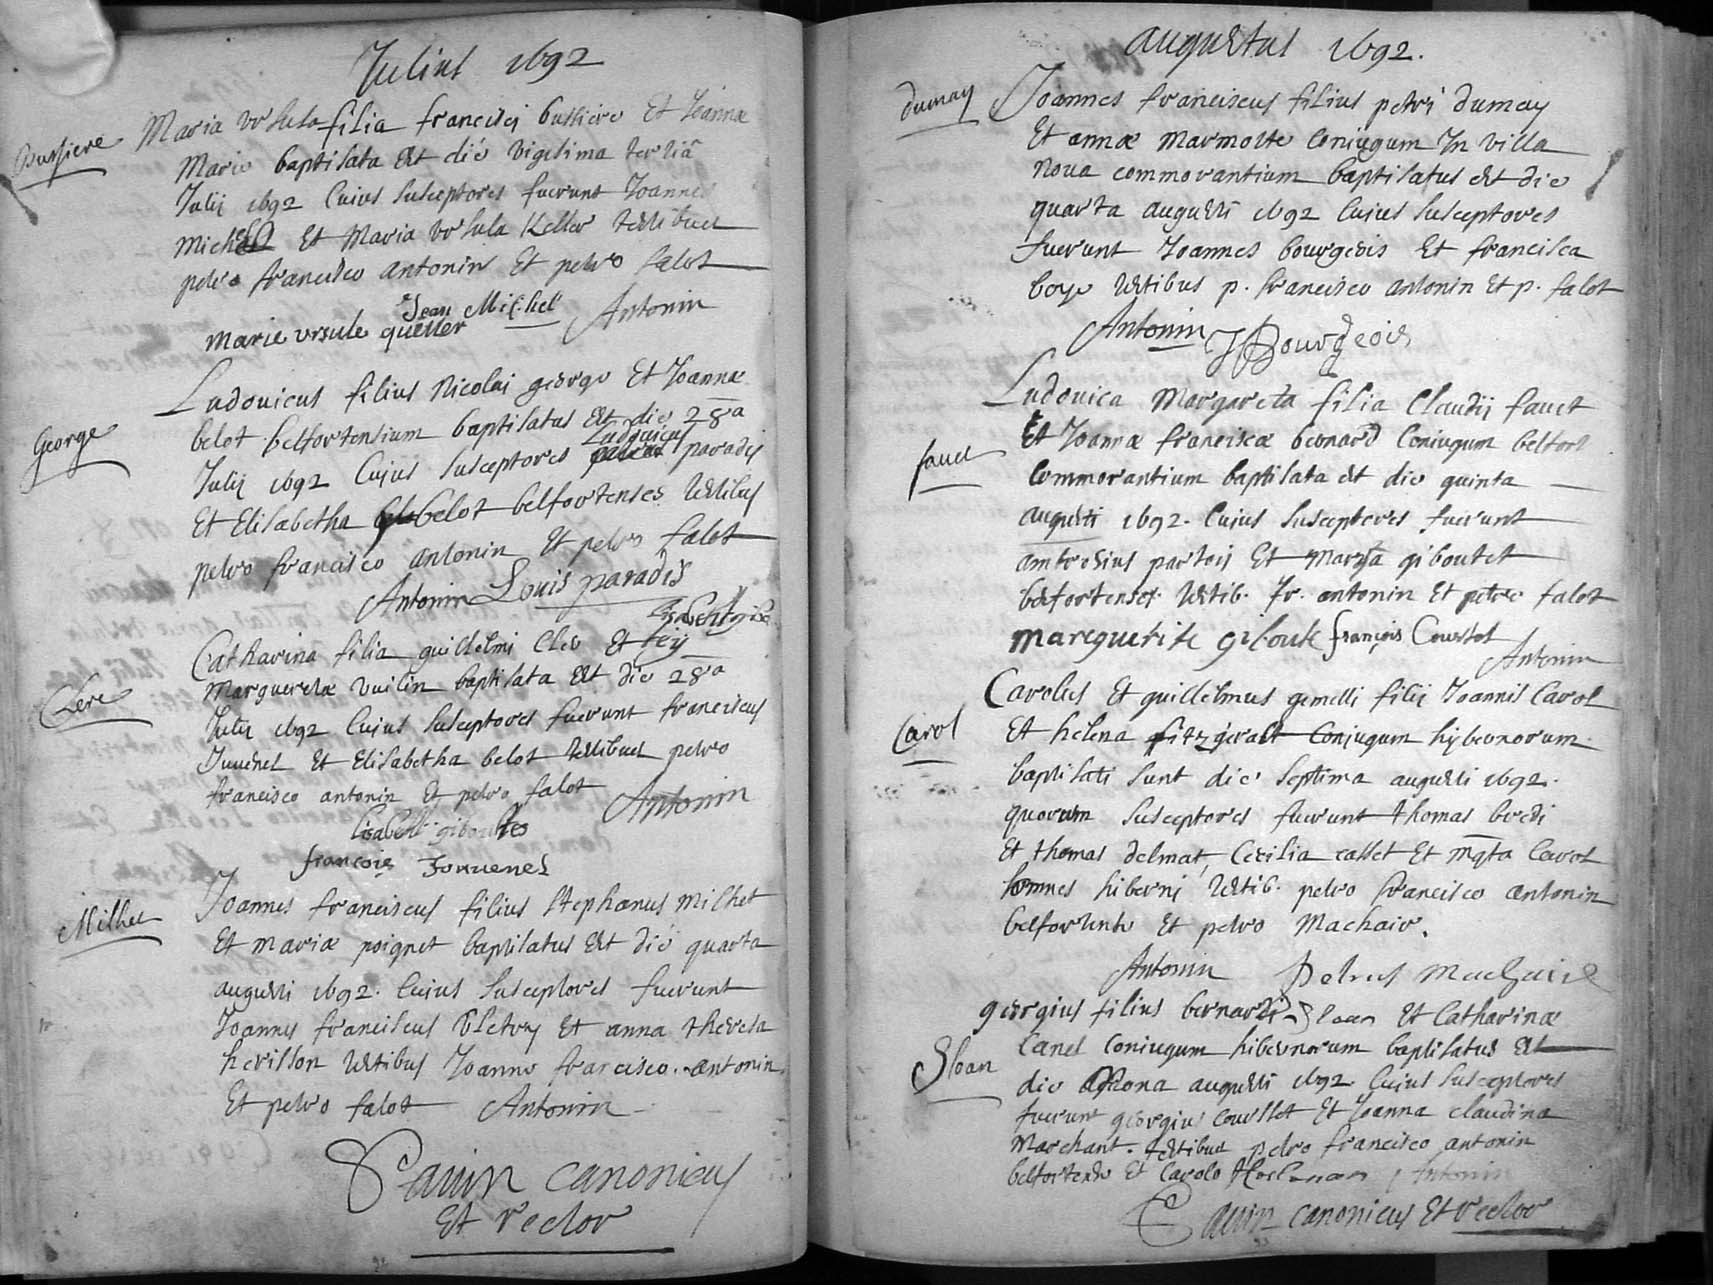 Julius 1692
Bussiere
Maria Ursula filia francisci bussiere Et Joannæ
Marie baptisata Est die vigesima tertiâ
Julij 1692 Cuius Susceptores fuerunt Joannes
Michel Et Maria Ursula Keller testibus
petro francisco antonin Et petro falot
Jean Michel Antonin
marie ursule queller
George
Ludovicus filius Nicolai george Et Joannæ
belot belfortensium baptisatus Est die 28a
Julij 1692 Cujus Susceptores Ludovicus paradis
Et Elisabetha belot belfortenses testibus
petro francisco antonin Et petro falot
Antonin Louis paradis
Clere
Catharina filia guillelmi Clere Et
Margueretæ vuilin baptisata Est die 28a
Julij 1692 Cujus Susceptores fuerunt franciscus
Juvenel Et Elisabetha belot testibus petro
francisco antonin Et petro falot Antonin
francois Jouvenel
Milhet
Joannes franciscus filius Stephanus milhet
Et mariæ poignet baptisatus Est die quarta
augusti 1692. Cuius Susceptores fuerunt
Joannes franciscus Et anna theresa
herisson testibus Joanne francisco antonin
Et petro falot Antonin
canonicus
Et rector
augustus 1692.
dumay
Joannes franciscus filius petri dumay
Et annæ marmotte Coniugum In villa
nova commorantium baptisatus Est die
quarta augusti 1692 Cuius Susceptores
fuerunt Joannes bourgeois Et francisca
boye testibus p. francisco antonin Et p. falot
Antonin JBourgeois
fauet
Ludovica Margareta filia Claudij fauet
Et Joannæ franciscæ bernard Coniugum belfort
Commorantium baptisata Est die quinta
augusti 1692. Cuius Susceptores fuerunt
ambrosius partois Et maria giboutet
belfortenses. testib. fr. antonin Et petro falot
marguerite giboute françois Courtot
Antonin
Carol
Carolus Et guillelmus gemelli filij Joannis Carol
Et helena fitzgeralt Conjugum hybernorum
baptisati Sunt die Septima augusti 1692.
quorum Susceptores fuerunt thomas
Et thomas delmat, Cecilia Et mgta Carol
omnes hiberni testib. petro francisco antonin
belfortente Et petro Machair.
Antonin Petrus Machaire
Sloan
georgius filius bernardi Sloan Et Catharinæ
Canel Coniugum hibernorum baptisatus Est
die Nona augusti 1692 Cuius Susceptores
fuerunt georgius courtlot Et Joanna claudina
Marchant. testibus petro francisco antonin
belfortense Et Carolo Antonin
canonicus Et rector